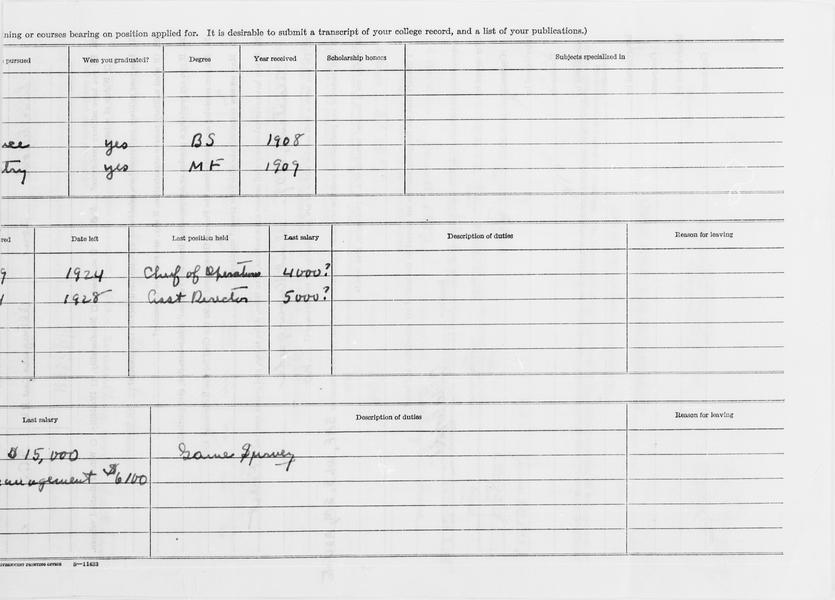 ning or courses bearing on position applied for. It is desirable to submit a transcript of your college record, and a list of your publications.)
pursued Were you graduated? Degree Year received Scholarship honors Subjects specialized in
yes BS 1908
try yes MF 1909
red Date left Last position held Last salary Description of duties Reason for leaving
9 1924 Chief of Operations 4000?
1928 Asst Director 5000?
Last salary Description of duties Reason for leaving
$15,000 Game Survey
anagement $6100
8—11633